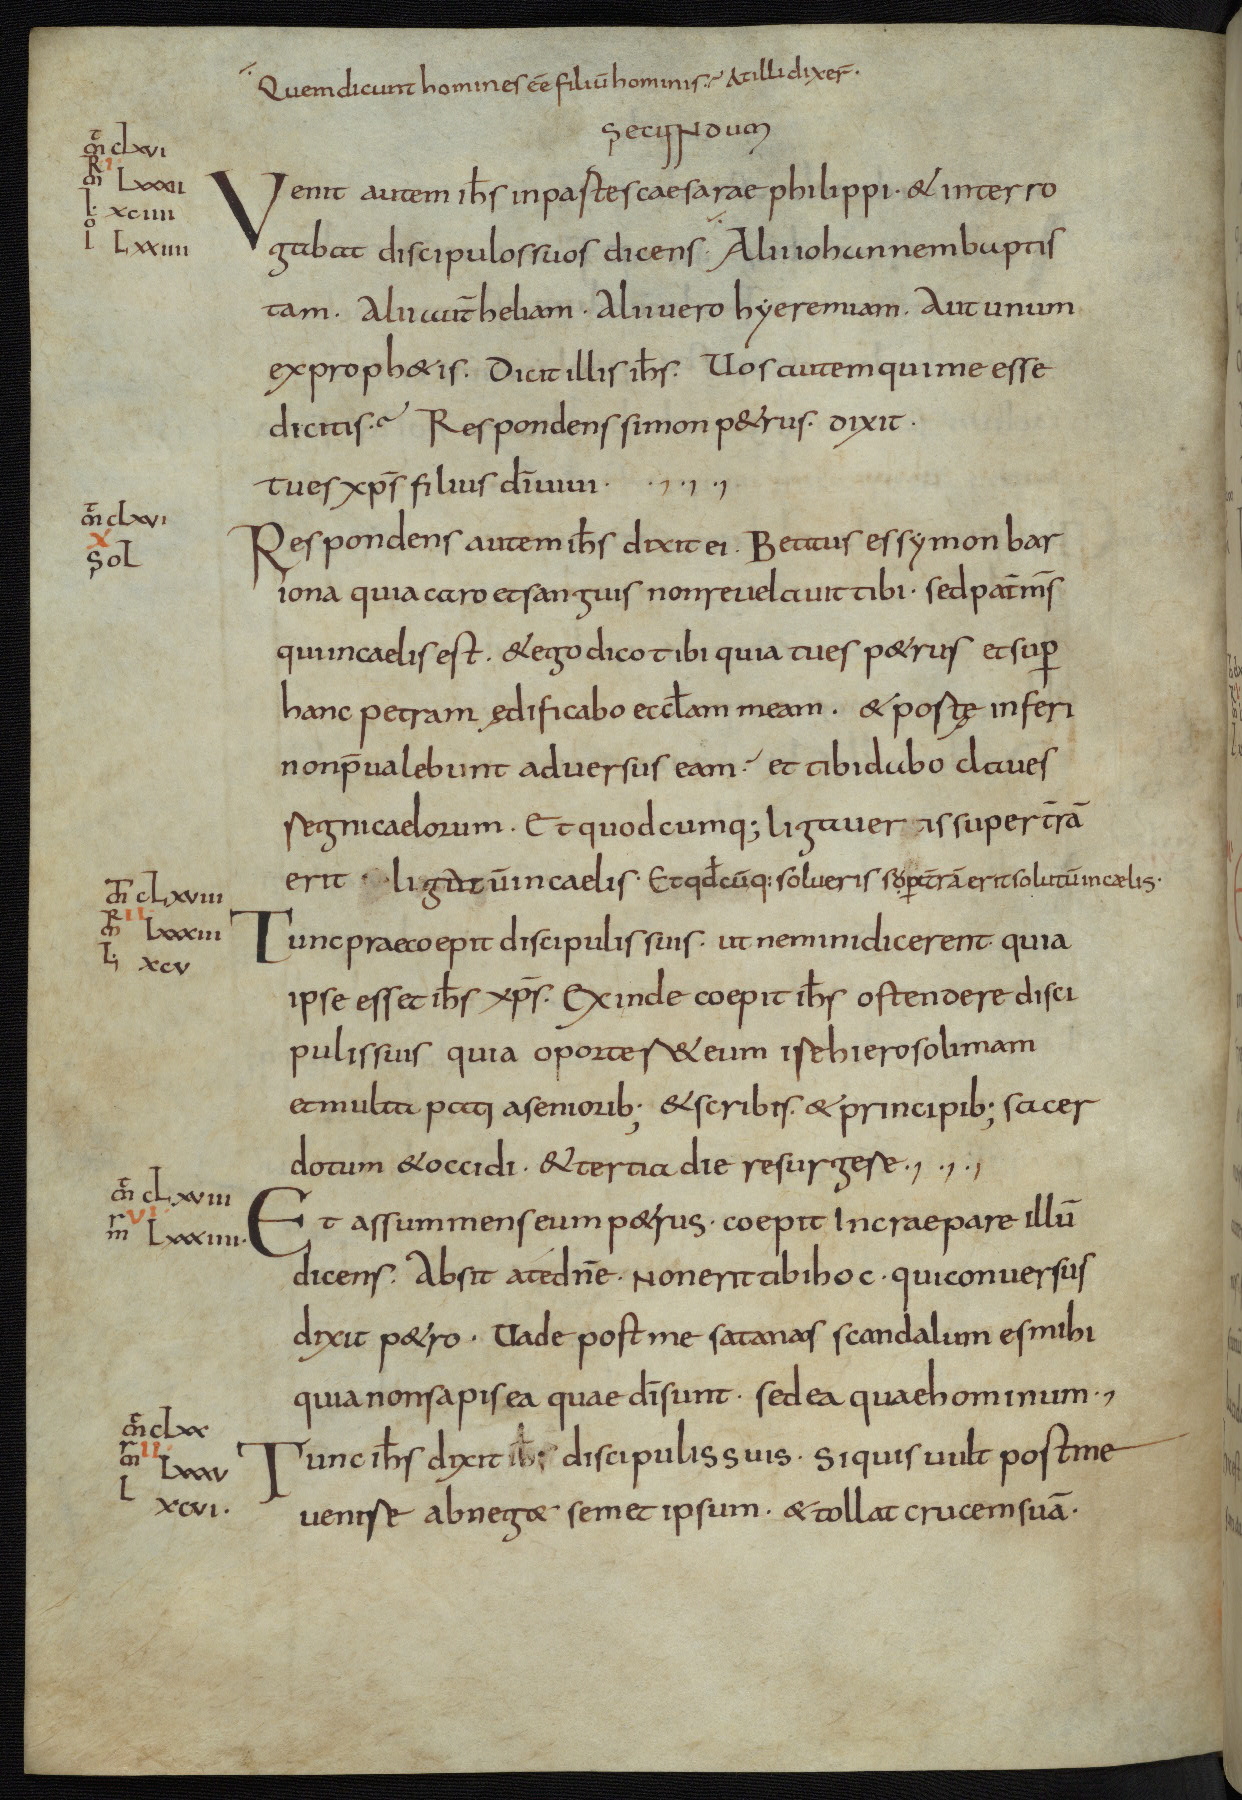 Quem dicunt homines eē filiū hominis? At illi dixer̄.
SECUNDUM
m̄t CLXVI
m̄R I LXXXII
l. XCIIII
io LXXIIII
Venit autem ih̄s in partes caesarae philippi. & interro
gabat discipulos suos dicens. Alii iohannem baptis
tam. Alii aut̄ heliam. Alii vero hyeremiam. Aut unum
ex proph&is. Dicit illis ih̄s. Uos autem qui me esse
dicitis? Respondens simon p&rus. dixit.
tu es xp̄s filius dī uiui.
m̄t CLXVI
X
SOL
Respondens autem ih̄s dixit ei. Beatus es symon bar
iona quia caro et sanguis non reuelauit tibi. sed pat̄ m̄s
qui in caelis est. & ego dico tibi quia tu es p&rus et sup̄
hanc petram ędificabo eccl̄am meam. & portę inferi
non p̄ualebunt adversus eam. et tibi dabo claues
regni caelorum. Et quodcumq; ligaveris super t̄rā
erit ligatū in caelis. Et qd̄cūq: solueris sup̄ t̄rā erit solutū in cælis.
m̄t CLXVIII
m̄R II LXXXIII
l. XCV
Tunc praecoepit discipulis suis. ut nemini dicerent quia
ipse esset ih̄s xp̄s. Exinde coepit ih̄s ostendere disci
pulis suis quia oporter&eum ire hierosolimam
et multa pati a seniorib; & scribis. & principib; sacer
dotum & occidi. & tertia die resurgere.
m̄t CLXVIII
mr VI LXXXIIII.
Et assummens eum p&rus. coepit increpare illū
dicens. Absit a te dn̄e. Non erit tibi hoc. qui conversus
dixit p&ro. Uade post me satanas scandalum es mihi
quia non sapis ea quae dī sunt. sed ea quae hominum.
m̄t CLXX
m̄r II LXXXV
l XCVI.
Tunc ih̄s dixit discipulis suis. Si quis uult post me
venire abneg& semet ipsum. & tollat crucem suā.